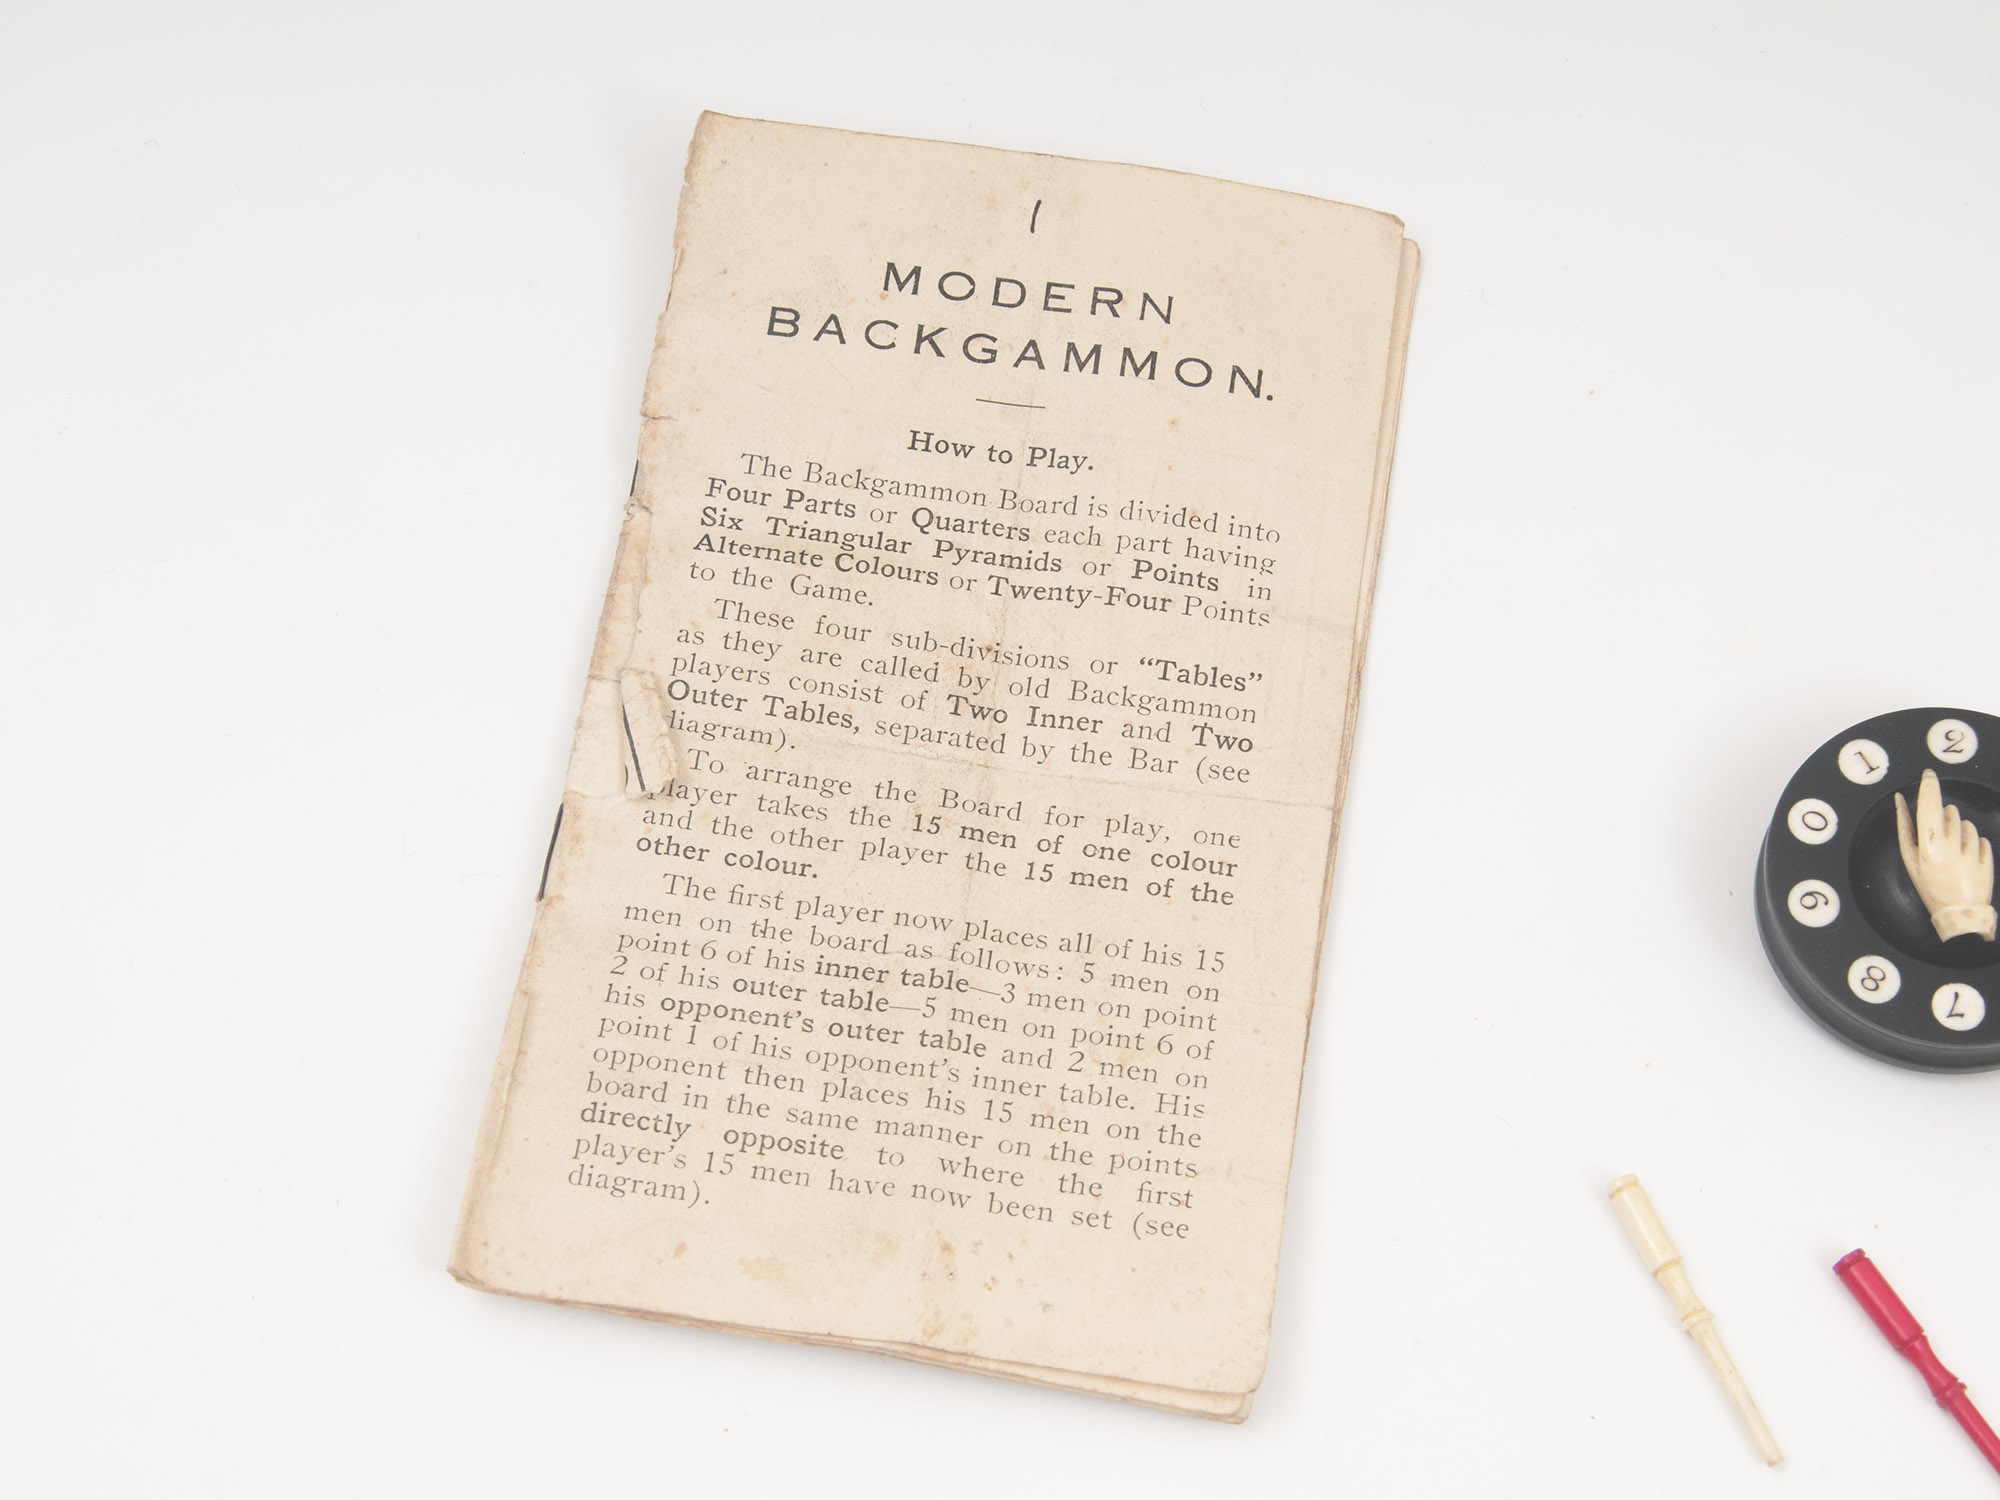 1
MODERN
BACKGAMMON.
How to Play.
The Backgammon Board is divided into
Four Parts or Quarters each part having
Six Triangular Pyramids or Points in
Alternate Colours or Twenty-Four Points
to the Game.
These four sub-divisions or “Tables”
as they are called by old Backgammon
players consist of Two Inner and Two
Outer Tables, separated by the Bar (see
diagram).
To arrange the Board for play, one
player takes the 15 men of one colour
and the other player the 15 men of the
other colour.
The first player now places all of his 15
men on the board as follows: 5 men on
point 6 of his inner table—3 men on point
2 of his outer table—5 men on point 6 of
his opponent’s outer table and 2 men on
point 1 of his opponent’s inner table. His
opponent then places his 15 men on the
board in the same manner on the points
directly opposite to where the first
player’s 15 men have now been set (see
diagram).
2
1
0
9
8
7